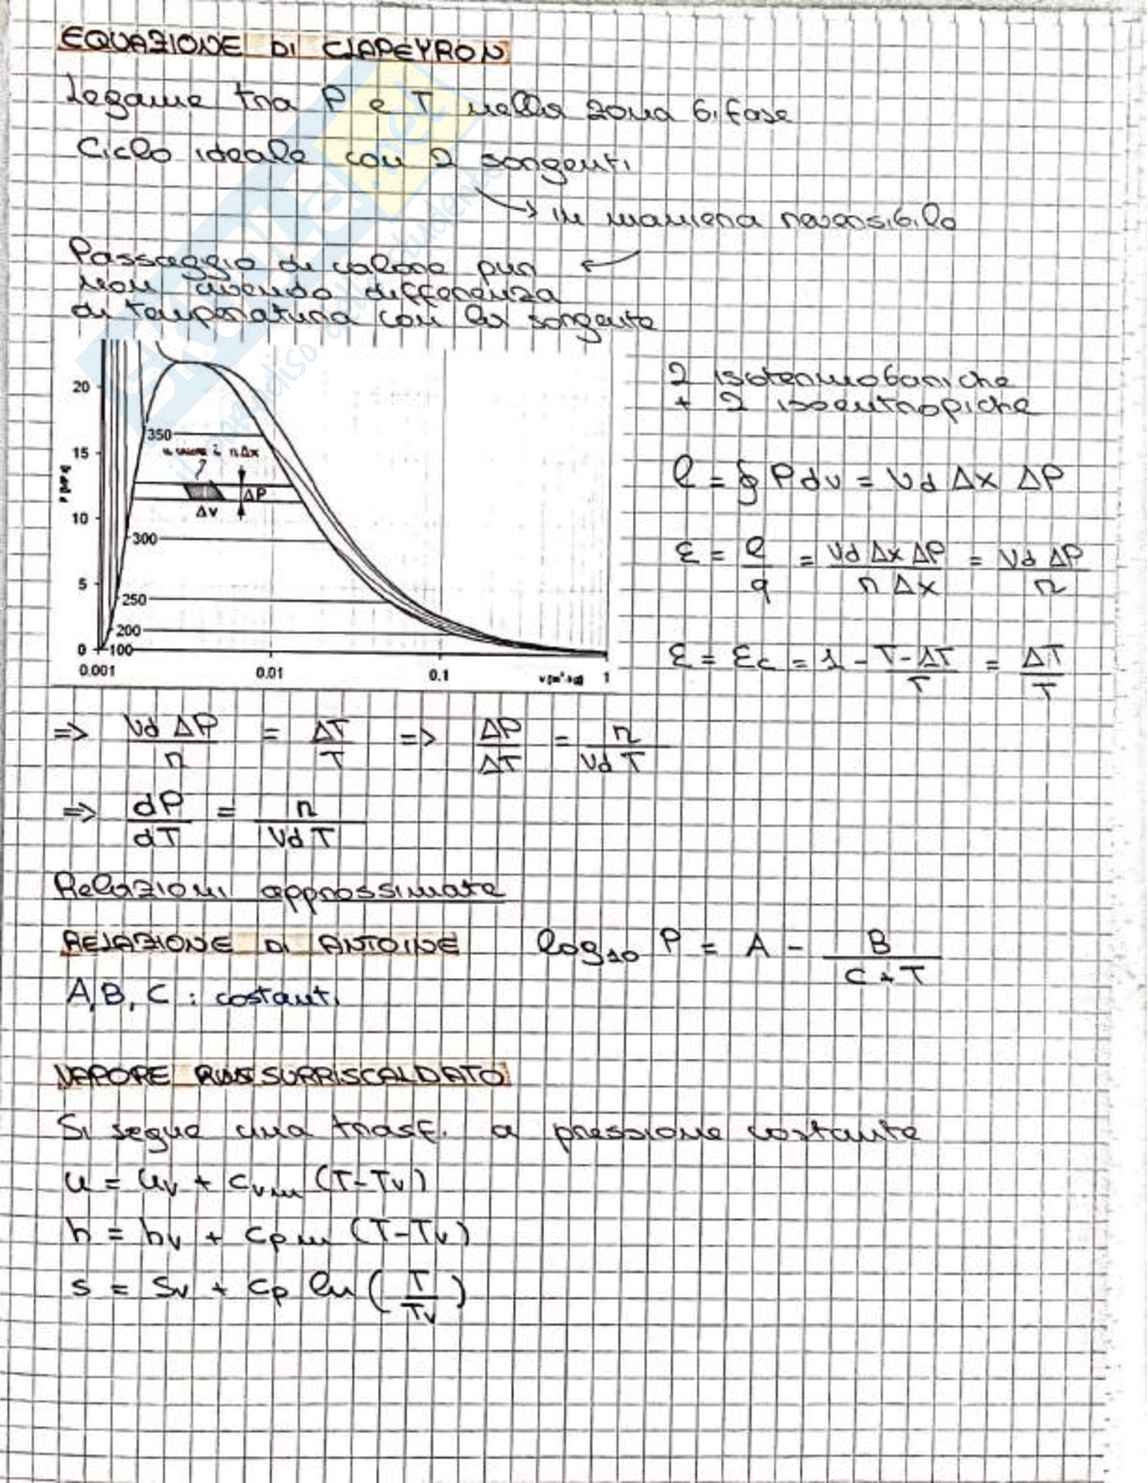 EQUAZIONE DI CLAPEYRON
Legame tra P e T nella zona bifase
Ciclo ideale con 2 sorgenti
→ in maniera reversibile
Passaggio di calore pur
non avendo differenza
di temperatura con la sorgente
2 isotermobariche
+ 2 isoentropiche
20
15
10
5
0
350
300
250
200
100
il calore è rΔx
ΔP
Δv
0.001 0.01 0.1 1
l = ∮ P dv = Vd Δx ΔP
ε = l/q = Vd Δx ΔP / r Δx = Vd ΔP / r
ε = εc = 1 - T-ΔT / T = ΔT / T
=> Vd ΔP / r = ΔT / T => ΔP / ΔT = r / Vd T
=> dP / dT = r / Vd T
Relazioni approssimate
RELAZIONE DI ANTOINE log10 P = A - B / C + T
A, B, C : costanti
VAPORE SURRISCALDATO
Si segue una trasf. a pressione costante
u = uv + cvm (T-Tv)
h = hv + cpm (T-Tv)
s = sv + cp ln (T/Tv)